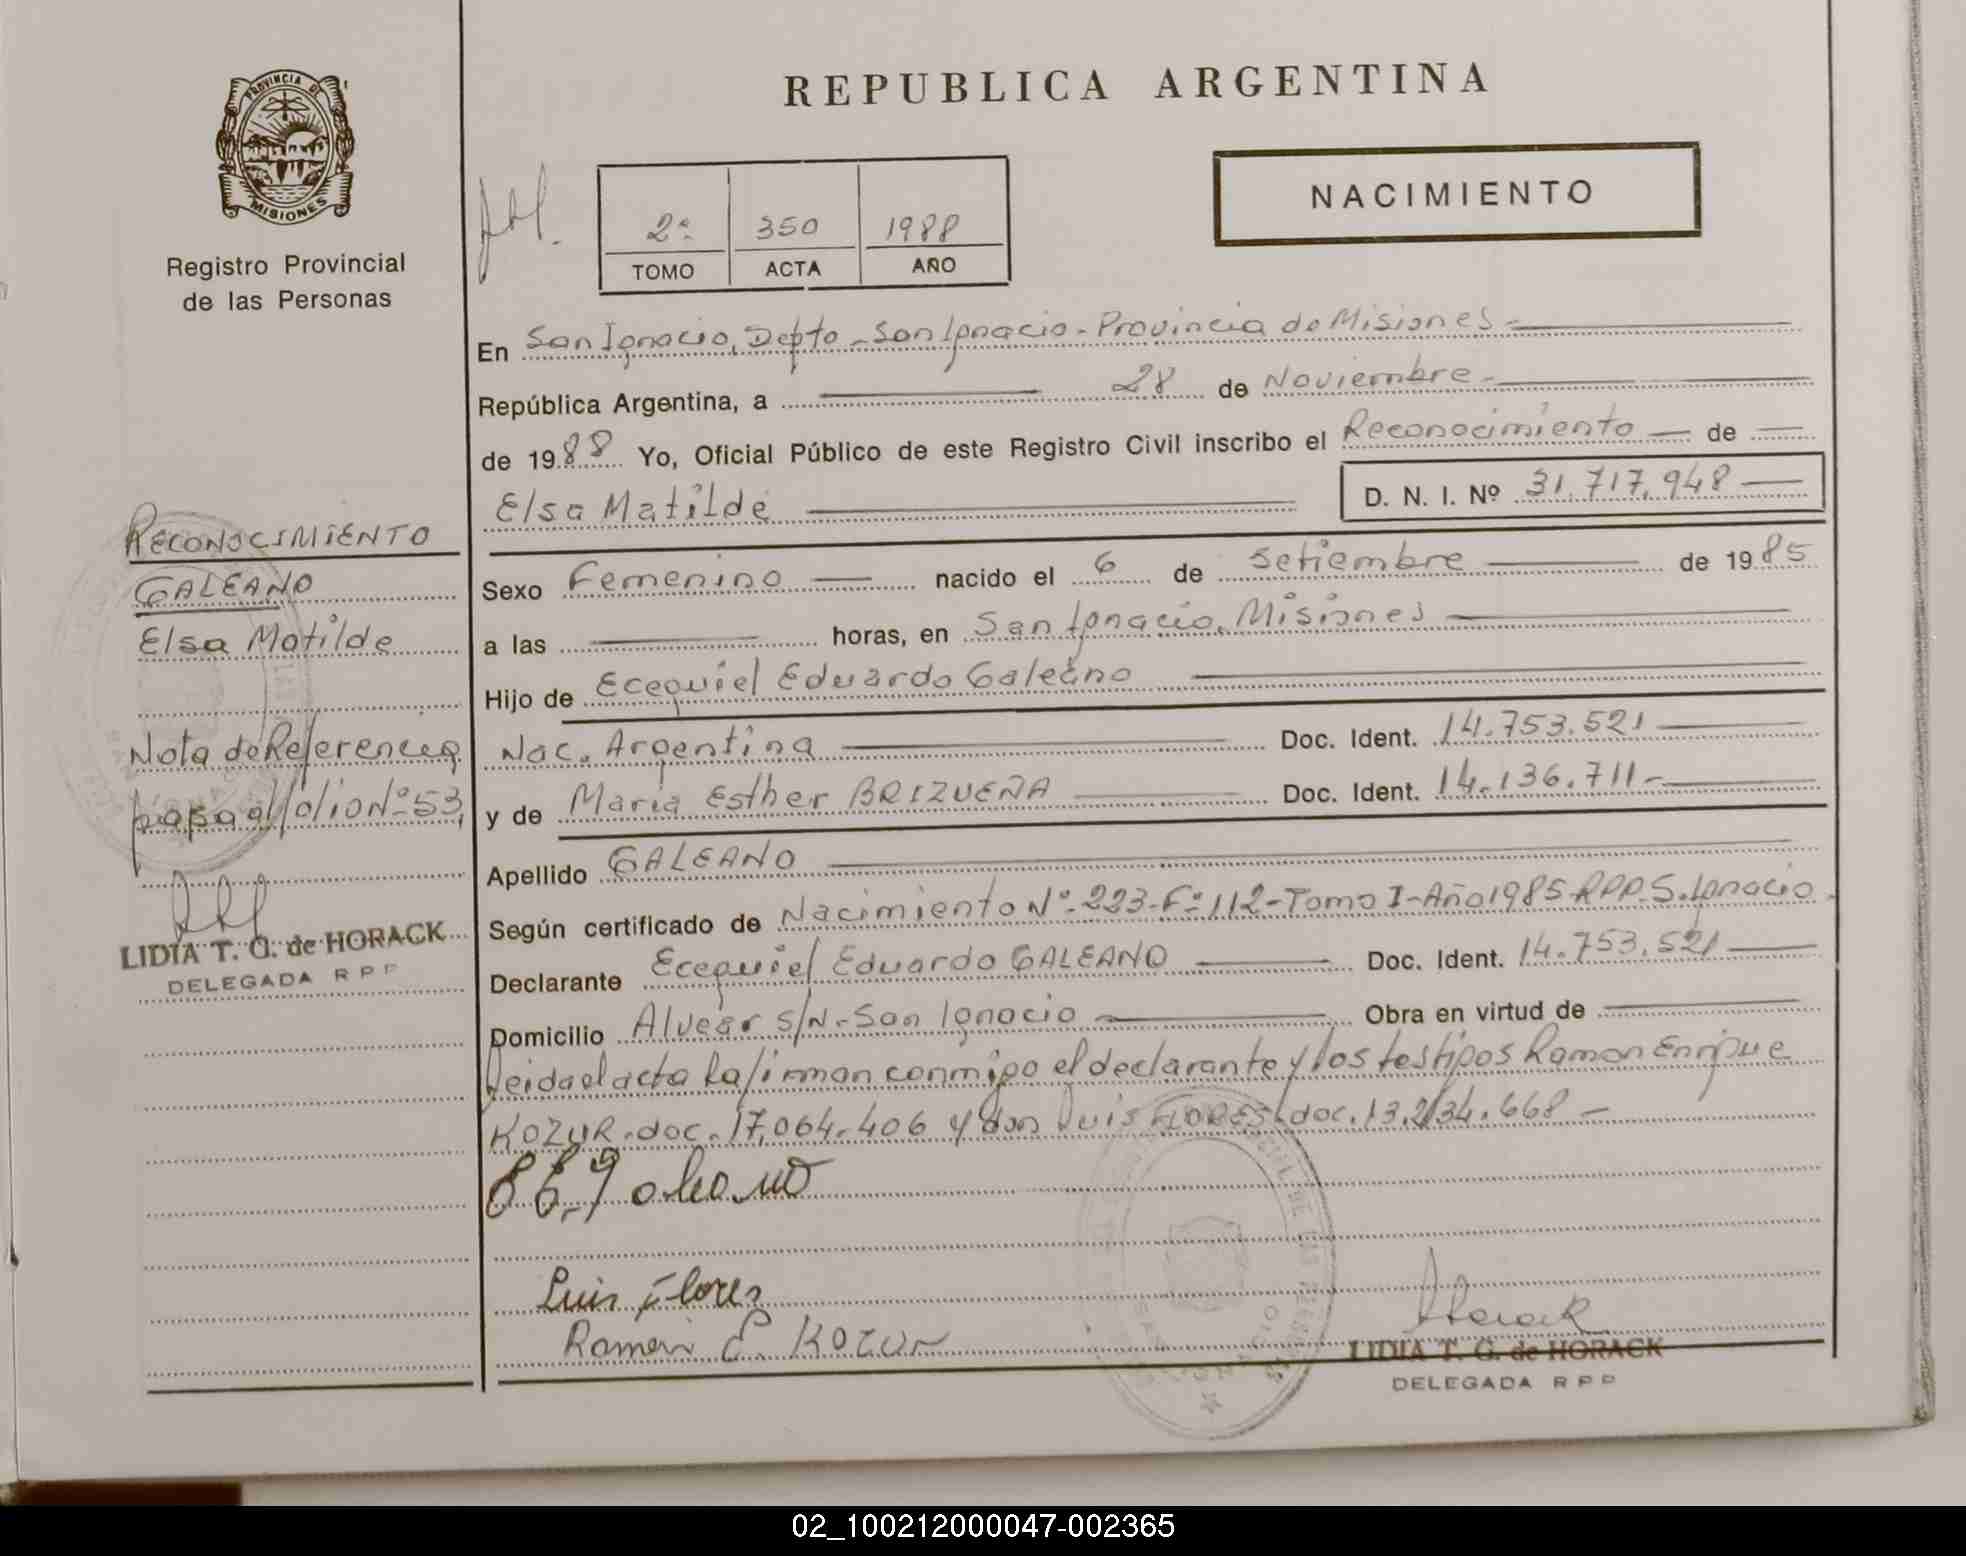 PROVINCIA DE
MISIONES
Registro Provincial
de las Personas
REPUBLICA ARGENTINA
NACIMIENTO
2º 350 1988
TOMO ACTA AÑO
En San Ignacio, Depto - San Ignacio - Provincia de Misiones -
República Argentina, a 28 de Noviembre -
de 1988 Yo, Oficial Público de este Registro Civil inscribo el Reconocimiento — de —
Elsa Matilde D. N. I. Nº 31.717.948 —
Sexo Femenino — nacido el 6 de Setiembre — de 1985
a las — horas, en San Ignacio, Misiones —
Hijo de Ecequiel Eduardo Galeano —
Nac. Argentina — Doc. Ident. 14.753.521 —
y de Maria Esther BRIZUEÑA — Doc. Ident. 14.136.711 -
Apellido GALEANO —
Según certificado de Nacimiento Nº-223-Fº112-Tomo I-Año1985-RPP-S.Ignacio -
Declarante Ecequiel Eduardo GALEANO — Doc. Ident. 14.753.521 —
Domicilio Alvear S/N-San Ignacio — Obra en virtud de —
Leida el acta la firman conmigo el declarante y los testigos Ramon Enrique
KOZUR. doc. 17.064.406 y don Luis FLORES. doc. 13.234.668 -
E E. Galeano
Luis Flores
Ramon E. KOZUR
Horack
LIDIA T. G. de HORACK
DELEGADA R P P
RECONOCIMIENTO
GALEANO
Elsa Matilde
Nota de Referencia
pasa al folio Nº-53,
LIDIA T. G. de HORACK
DELEGADA R P P
02_100212000047-002365